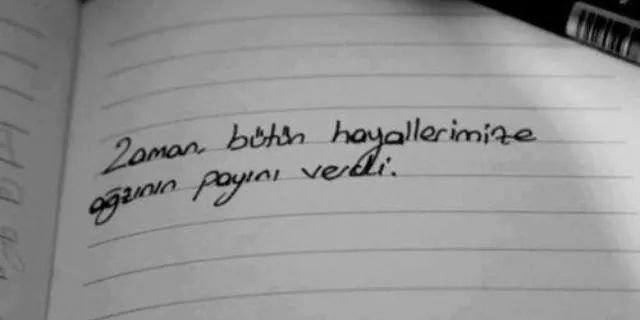 Zaman, bütün hayallerimize
ağzının payını verdi.